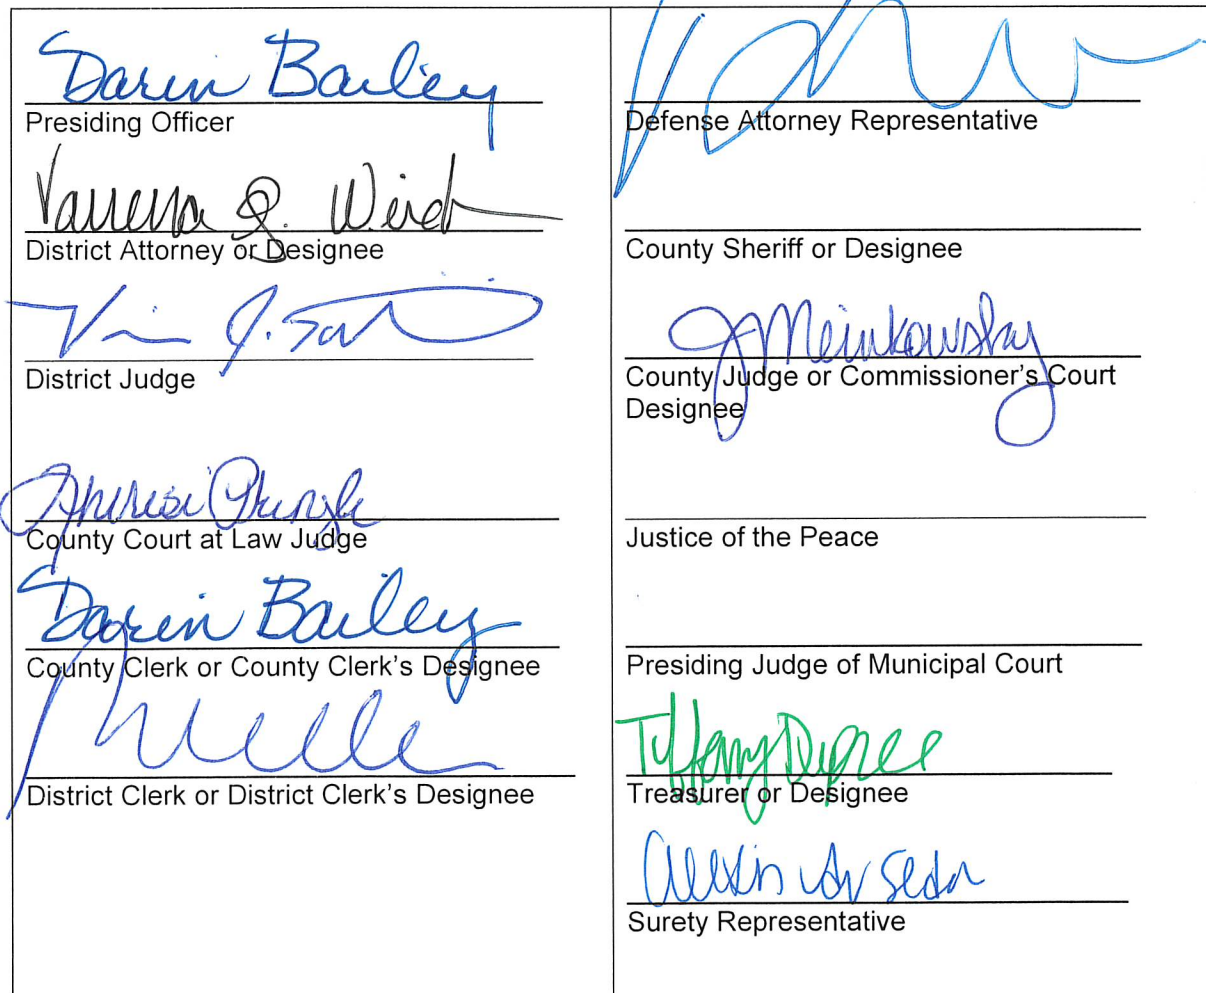 Darin Bailey
Presiding Officer
District Attorney or Designee
District Judge
County Court at Law Judge
Darin Bailey
County Clerk or County Clerk's Designee
District Clerk or District Clerk's Designee
Defense Attorney Representative
County Sheriff or Designee
J Meinkowsky
County Judge or Commissioner's Court
Designee
Justice of the Peace
Presiding Judge of Municipal Court
Tiffany Dupree
Treasurer or Designee
Surety Representative